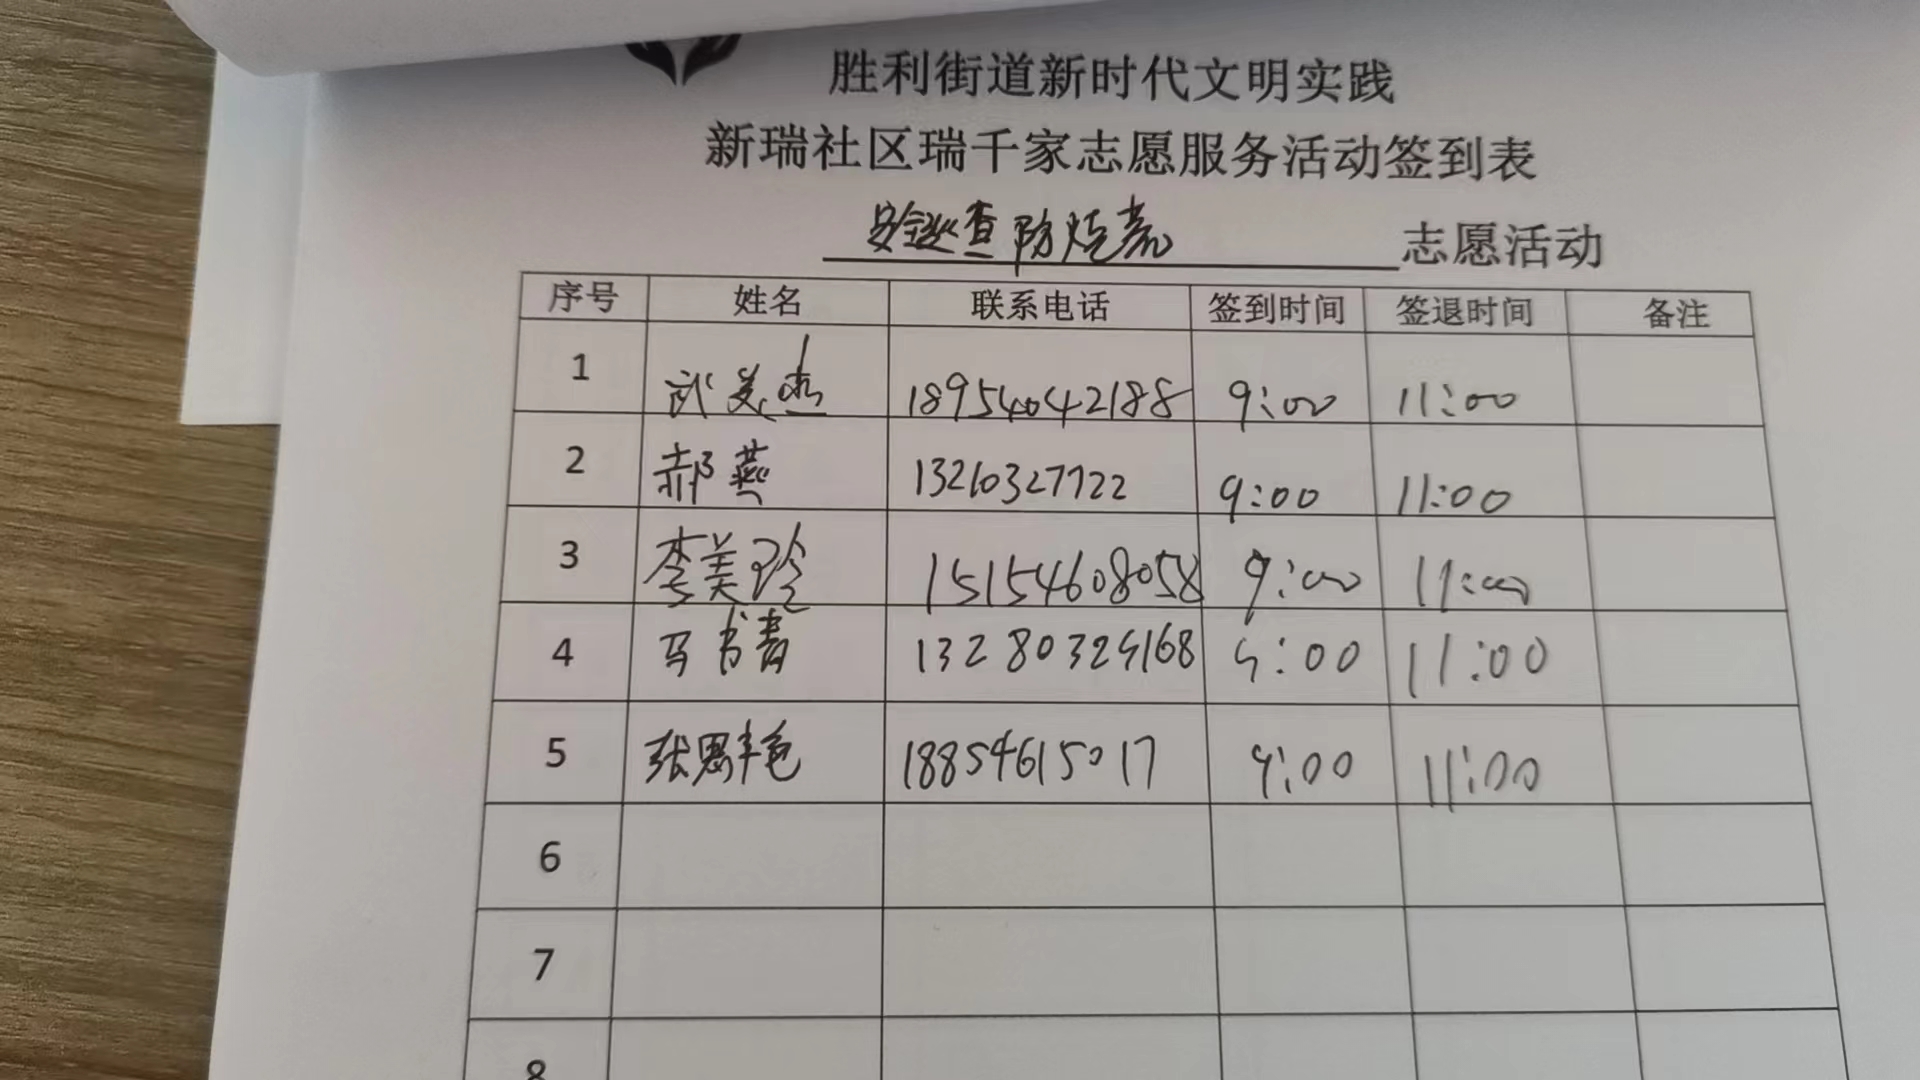 胜利街道新时代文明实践
新瑞社区瑞千家志愿服务活动签到表
安全巡查防烧荒 志愿活动
序号 姓名 联系电话 签到时间 签退时间 备注
1 武美杰 18954042188 9:00 11:00
2 郝燕 13210327722 9:00 11:00
3 李美玲 15154608058 9:00 11:00
4 马书青 13280324168 9:00 11:00
5 张恩艳 18854615017 9:00 11:00
6
7
8